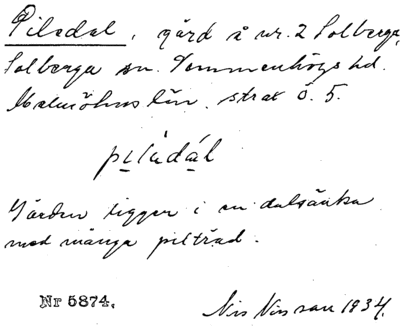 Pilsdal, gård å nr. 2 Solberga,
Solberga sn. Vemmenhögs hd.
Malmöhus län. strax Ö. 5.
pịlädạ́l
Gården ligger i en dalsänka
med många pilträd.
Nr 5874. Nis Nisson 1934.